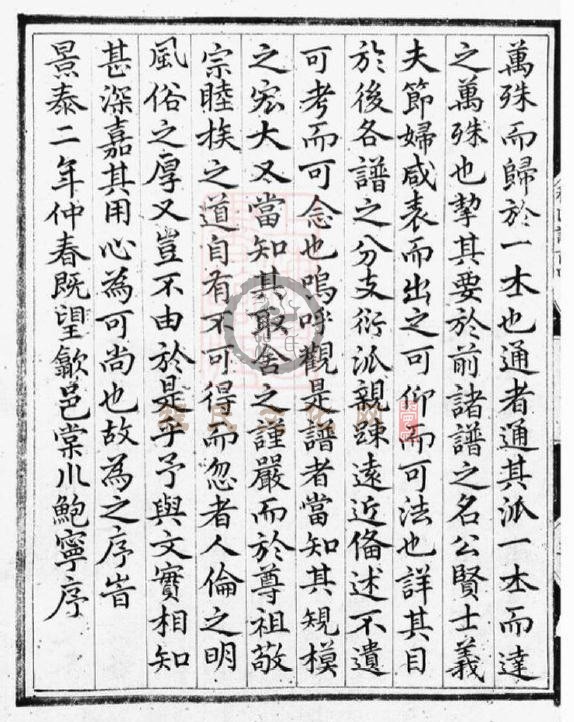 萬殊而歸於一本也通者通其派一本而達
之萬殊也挈其要於前諸譜之名公賢士義
夫節婦咸表而出之可仰而可法也詳其目
於後各譜之分支衍派親踈遠近俻述不遺
可考而可念也嗚呼觀是譜者當知其規模
之宏大又當知其取舍之謹嚴而於尊祖敬
宗睦族之道自有不可得而忽者人倫之明
風俗之厚又豈不由於是乎予與文實相知
甚深嘉其用心為可尚也故為之序旹
景泰二年仲春既望歙邑棠川鮑寧序